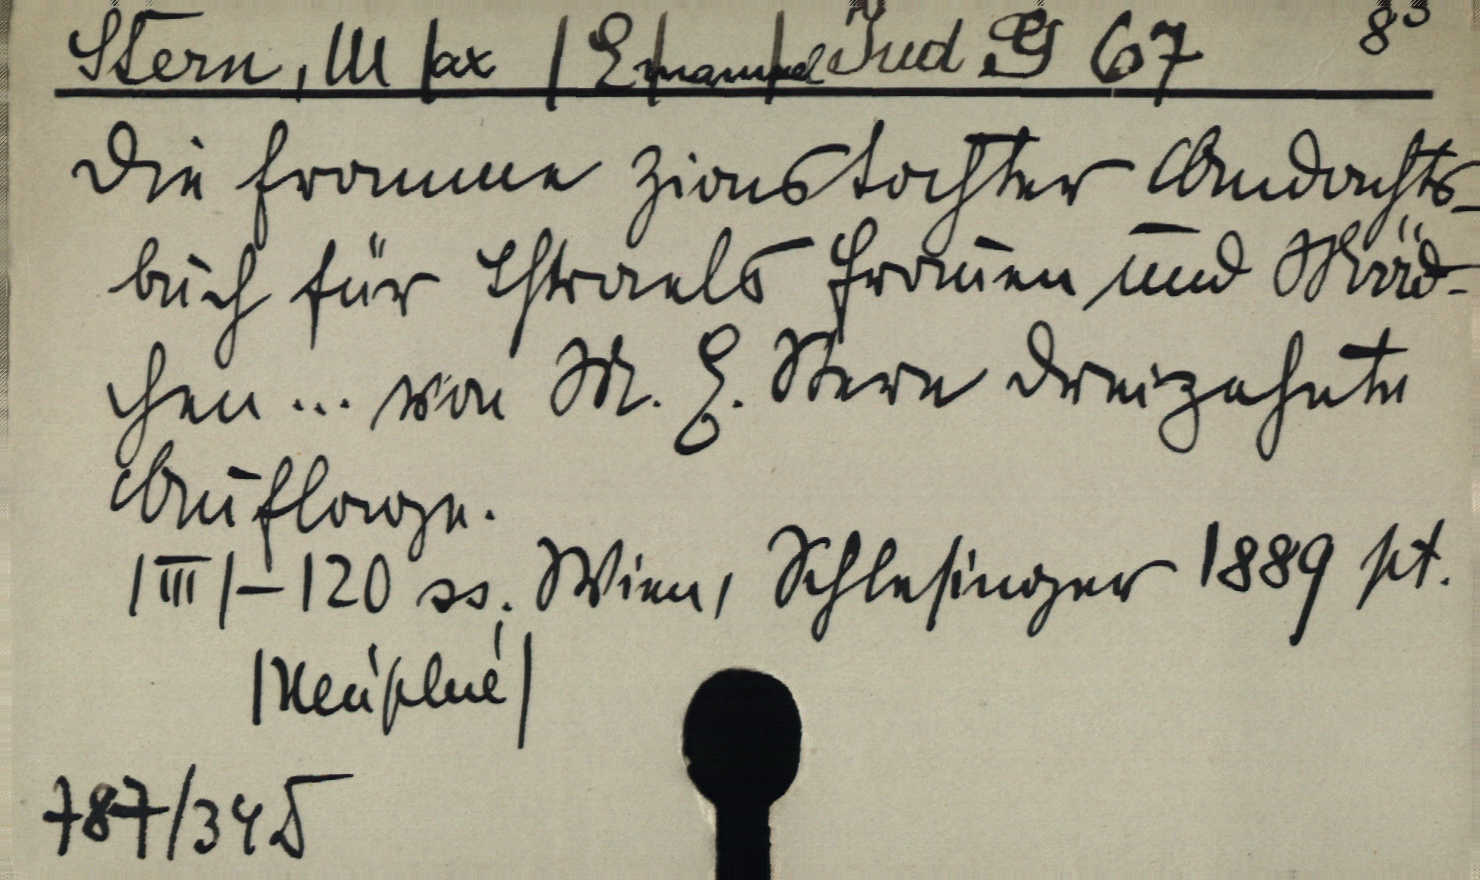 Stern, M|ax |E|manu|el Jud G 67 8°
Die fromme Zionstochter Andachts-
buch für Israels Frauen und Mäd-
chen ... von M. E. Stern Dreizehnte
Auflage.
|III|-120 ss. Wien, Schlesinger 1889 pt.
787/345